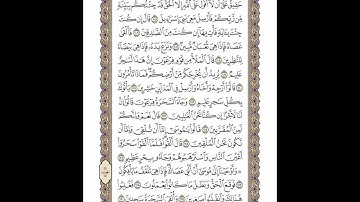 حَقِيقٌ عَلَىٰٓ أَن لَّآ أَقُولَ عَلَى ٱللَّهِ إِلَّا ٱلْحَقَّ قَدْ جِئْتُكُم بِبَيِّنَةٍ
مِّن رَّبِّكُمْ فَأَرْسِلْ مَعِىَ بَنِىٓ إِسْرَٰٓءِيلَ قَالَ إِن كُنتَ
جِئْتَ بِـَٔايَةٍ فَأْتِ بِهَآ إِن كُنتَ مِنَ ٱلصَّٰدِقِينَ فَأَلْقَىٰ
عَصَاهُ فَإِذَا هِىَ ثُعْبَانٌ مُّبِينٌ وَنَزَعَ يَدَهُۥ فَإِذَا هِىَ بَيْضَآءُ
لِلنَّٰظِرِينَ قَالَ ٱلْمَلَأُ مِن قَوْمِ فِرْعَوْنَ إِنَّ هَٰذَا لَسَٰحِرٌ
عَلِيمٌ يُرِيدُ أَن يُخْرِجَكُم مِّنْ أَرْضِكُمْ فَمَاذَا تَأْمُرُونَ
قَالُوٓا۟ أَرْجِهْ وَأَخَاهُ وَأَرْسِلْ فِى ٱلْمَدَآئِنِ حَٰشِرِينَ يَأْتُوكَ
بِكُلِّ سَٰحِرٍ عَلِيمٍ وَجَآءَ ٱلسَّحَرَةُ فِرْعَوْنَ قَالُوٓا۟
إِنَّ لَنَا لَأَجْرًا إِن كُنَّا نَحْنُ ٱلْغَٰلِبِينَ قَالَ نَعَمْ وَإِنَّكُمْ
لَمِنَ ٱلْمُقَرَّبِينَ قَالُوا۟ يَٰمُوسَىٰٓ إِمَّآ أَن تُلْقِىَ وَإِمَّآ أَن
نَّكُونَ نَحْنُ ٱلْمُلْقِينَ قَالَ أَلْقُوا۟ فَلَمَّآ أَلْقَوْا۟ سَحَرُوٓا۟
أَعْيُنَ ٱلنَّاسِ وَٱسْتَرْهَبُوهُمْ وَجَآءُو بِسِحْرٍ عَظِيمٍ
۞ وَأَوْحَيْنَآ إِلَىٰ مُوسَىٰٓ أَنْ أَلْقِ عَصَاكَ فَإِذَا هِىَ تَلْقَفُ مَا يَأْفِكُونَ
فَوَقَعَ ٱلْحَقُّ وَبَطَلَ مَا كَانُوا۟ يَعْمَلُونَ فَغُلِبُوا۟
هُنَالِكَ وَٱنقَلَبُوا۟ صَٰغِرِينَ وَأُلْقِىَ ٱلسَّحَرَةُ سَٰجِدِينَ